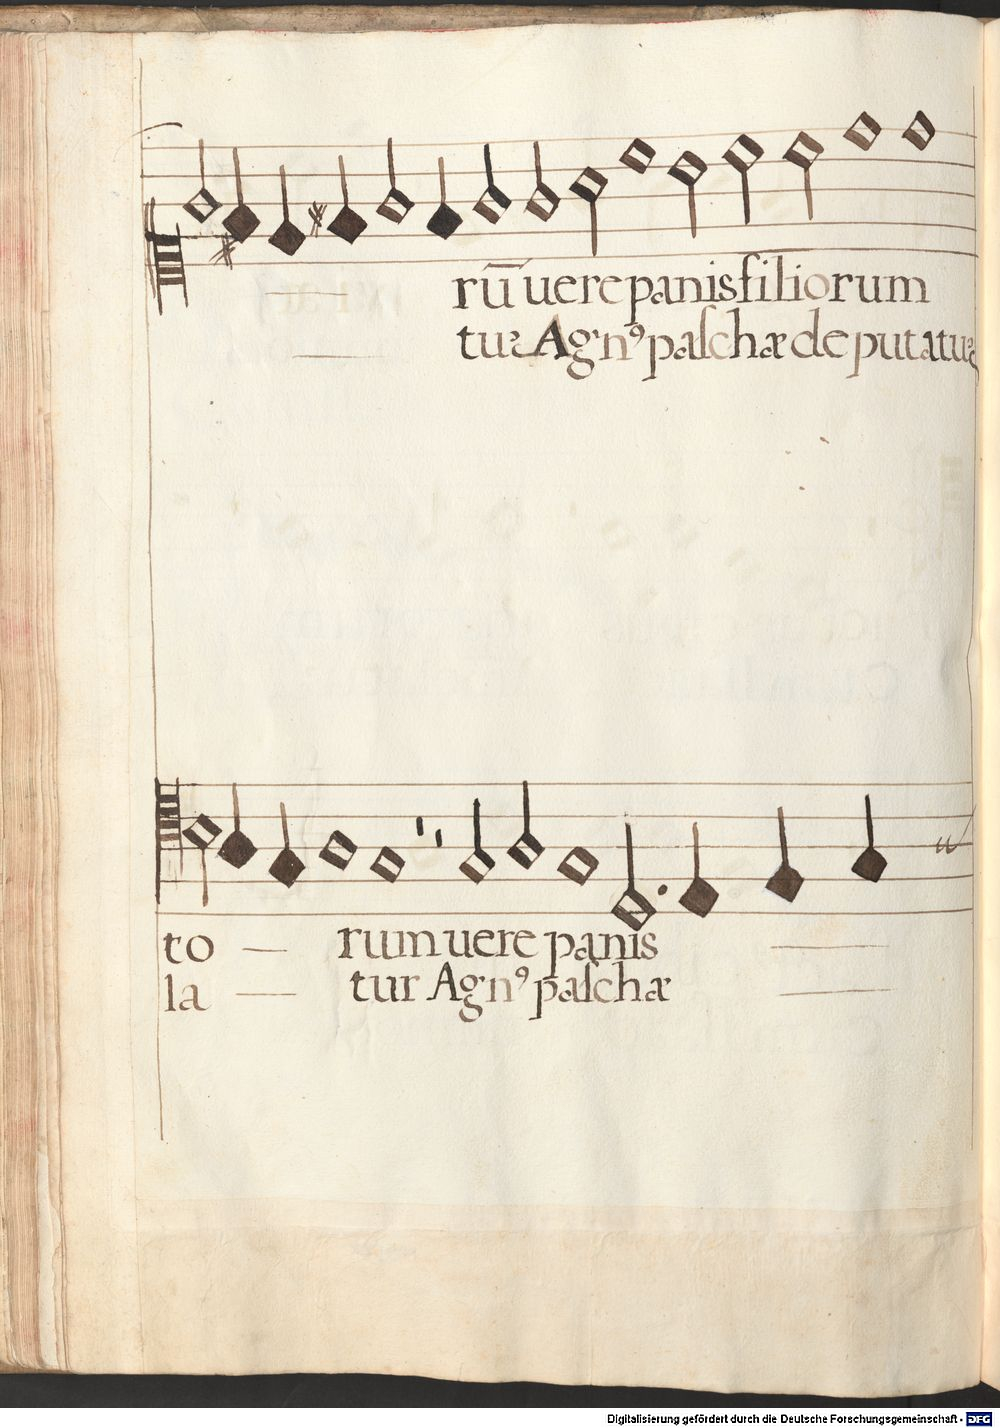 rū uere panis filiorum
tuꝛ Agnꝰ paſchæ deputatuꝛ
to — rum uere panis —
la — tur Agnꝰ paſchæ —
Digitalisierung gefördert durch die Deutsche Forschungsgemeinschaft - DFG